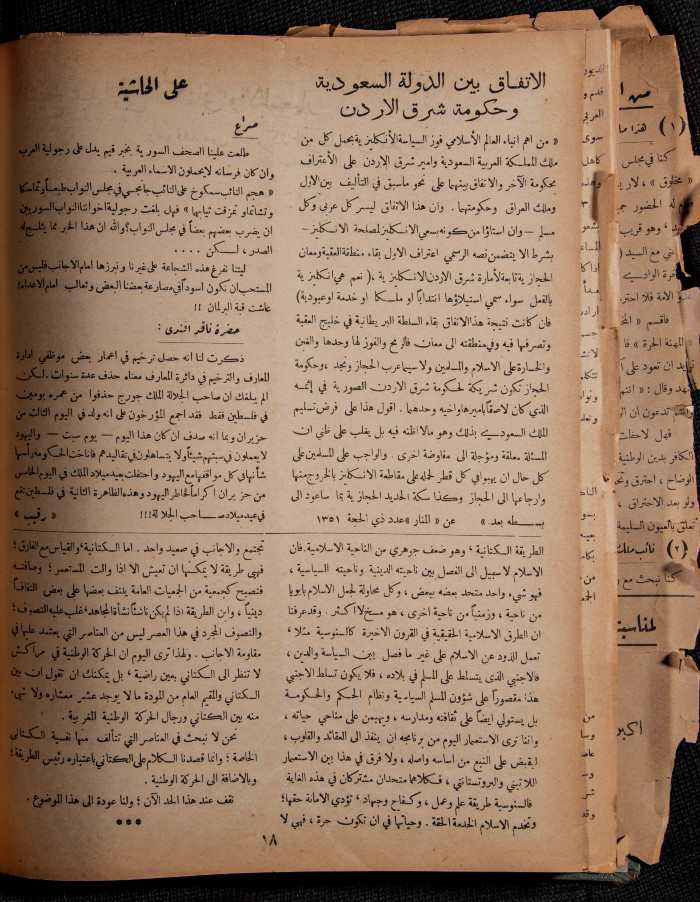 الاتفاق بين الدولة السعودية
وحكومة شرق الاردن
« من اهم انباء العالم الأسلامي فوز السياسة الأنكليزية بحمل كل من
ملك المملكة العربية السعودية وامير شرق الاردن على الأعتراف
بحكومة الآخر والاتفاق بينهما على نحو ماسبق في التأليف بين الاول
وملك العراق وحكومتهما . وان هذا الاتفاق ليسر كل عربي وكل
مسلم — وان استاؤا من كونه بسعي الانكليز لمصلحة الانكليز —
بشرط الا يتضمن نصه الرسمي اعتراف الاول بقاء منطقة العقبة ومعان
الحجازية تابعة لأمارة شرق الاردن الانكليزية ،( نعم هي انكليزية
بالفعل سواء سمي استيلاؤها انتداباً او ملكا او خدمة او عبودية )
فان كانت نتيجة هذا الاتفاق بقاء السلطة البريطانية في خليج العقبة
وتصرفها فيه وفي منطقته الى معان فالربح والفوز لها وحدها والغبن
والخسارة على الاسلام والمسلمين ولا سيما عرب الحجاز ونجد ، وحكومة
الحجاز تكون شريكة لحكومة شرق الاردن الصورية في إثمه
الذي كان لاصقاً باميرها واخيه وحدهما . اقول هذا على فرض تسليم
الملك السعودي بذلك وهو مالا اظنه فيه بل يغلب على ظني ان
المسئلة معلقة ومؤجلة الى مفاوضة اخرى . والواجب على المسلمين على
كل حال ان يهبوا في كل قطر لحمله على مقاطعة الانكليز بالخروج منها
وارجاعها الى الحجاز وكذا سكة الحديد الحجازية بما ساعود الى
بسطه بعد » عن « المنار » عدد ذي الحجة ١٣٥١
على الحاشية
صراع
طلعت علينا الصحف السورية بخبر قيم يدل على رجولية العرب
وان كان فرسانه لايحملون الاسماء العربية .
« هجم النائب سمكوخ على النائب جانجي في مجلس النواب طبعاً وتماسكا
وتشاتما وتمزقت ثيابهما » فهل بلغت رجولية اخواننا النواب السوريين
ان يضرب بعضهم بعضاً في مجلس النواب؟ والله ان هذا الخبر مما يثلج له
الصدر ، لكن . . . .
ليتنا نفرغ هذه الشجاعة على غيرنا ونبرزها امام الاجانب فليس من
المستحب ان نكون اسوداً في مصارعة بعضنا البعض وثعالب امام الاعداء!
عاشت قبة البرلمان !!
حضرة ناقر افندي :
ذكرت لنا انه حصل ترخيم في اعمار بعض موظفي ادارة
المعارف والترخيم في دائرة المعارف معناه حذف عدة سنوات . لكن
الم يبلغك ان صاحب الجلالة الملك جورج حذفوا من عمره يومين
في فلسطين فقط فقد اجمع المؤرخون على انه ولد في اليوم الثالث من
حزيران وبما انه صدف ان كان هذا اليوم — يوم سبت — واليهود
لايعملون في سبتهم شيئاً ولا يتساهلون في تقاليدهم فاناخت الحكومة رأسها
شأنها في كل مواقفها مع اليهود واحتفلت بعيد ميلاد الملك في اليوم الخامس
من حزيران اكراماً لخاطر اليهود وهذه الظاهرة الثانية في فلسطين تقع
في عيد ميلاد صاحب الجلالة !!! « رقيب »
الطريقة الكتانية ، وهو ضعف جوهري من الناحية الاسلامية. فان
الاسلام لاسبيل الى الفصل بين ناحيته الدينية وناحيته السياسية ،
فهو شيء واحد متحد بعضه ببعض ، وكل محاولة لجعل الاسلام بابويا
من ناحية ، وزمنياً من ناحية اخرى ، هو مسخ لا اكثر . وقد عرفنا
ان الطرق الاسلامية الحقيقية في القرون الاخيرة كالسنوسية مثلا ،
تعمل الذود عن الاسلام على غير ما فصل بين السياسة والدين ،
فالاجنبي الذي يتسلط على المسلم في بلاده ، فلا يكون تسلط الاجنبي
هذا مقصوراً على شؤون المسلم السياسية ونظام الحكم والحكومة
بل يستولي ايضاً على ثقافته ومدارسه ، ويهيمن على مناحي حياته ،
واننا نرى الاستعمار اليوم من برنامجه ان ينفذ الى العقائد والقلوب ،
ليقبض على النبع من اساسه واصله ، ولا فرق في هذا بين الاستعمار
اللاتيني والبروتستانتي ، فكلاهما متحدان مشتركان في هذه الغاية
فالسنوسية طريقة علم وعمل ، وكفاح وجهاد ، تؤدي الامانة حقها؛
وتخدم الاسلام الخدمة الحقة . وحياتها في ان تكون حرة ، فهي لا
تجتمع والاجانب في صعيد واحد . اما الكتانية ؛ والقياس مع الفارق ؛
فهي طريقة لا يمكنها ان تعيش الا اذا والت المستعمر ؛ وصافته
فتصبح كجمعية من الجمعيات العامة يلتف بعضها على بعض التفافاً
دينياً ، وابن الطريقة اذا لم يكن ناشئاً نشأة المجاهد ، غلب عليه التصوف ؛
والتصوف المجرد في هذا العصر ليس من العناصر التي يعتمد عليها في
مقاومة الاجانب . ولهذا ترى اليوم ان الحركة الوطنية في مراكش
لا تنظر الى الكتاني بعين راضية ، بل يمكنك ان تقول ان بين
الكتاني والمقيم العام من المودة ما لا يوجد عشر معشاره ولا شيء
منه بين الكتاني ورجال الحركة الوطنية المغربية .
نحن لا نبحث في العناصر التي تتألف منها نفسية الكتاني
الخاصة ؛ وانما قصدنا الكلام على الكتاني باعتباره رئيس الطريقة ؛
وبالاضافة الى الحركة الوطنية .
نقف عند هذا الحد الآن ؛ ولنا عودة الى هذا الموضوع .
***
١٨